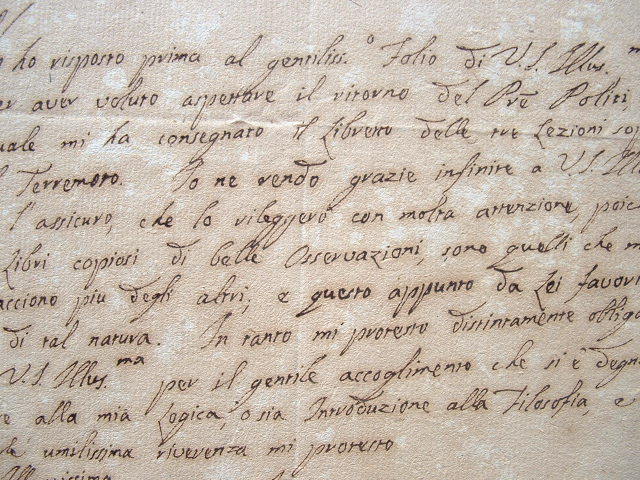 ho risposto prima al gentiliss.o Folio di V.S. Illus.m
er aver voluto aspettare il ritorno del Pre Politi,
uale mi ha consegnato il Libretto delle tre Lezioni so
l Terremoto. Io ne rendo grazie infinite a V.S. Ill
l'assicuro, che lo rileggerò con molta attenzione, poic
Libri copiosi di belle Osservazioni, sono quelli che m
acciono piu degli altri, e questo appunto da Lei favori
di tal natura. In tanto mi protesto distintamente obliga
V.S. Illus.ma per il gentile accoglimento che si è degn
re alla mia Logica, o sia Introduzione alla Filosofia, e
umilissima riverenza mi protesto